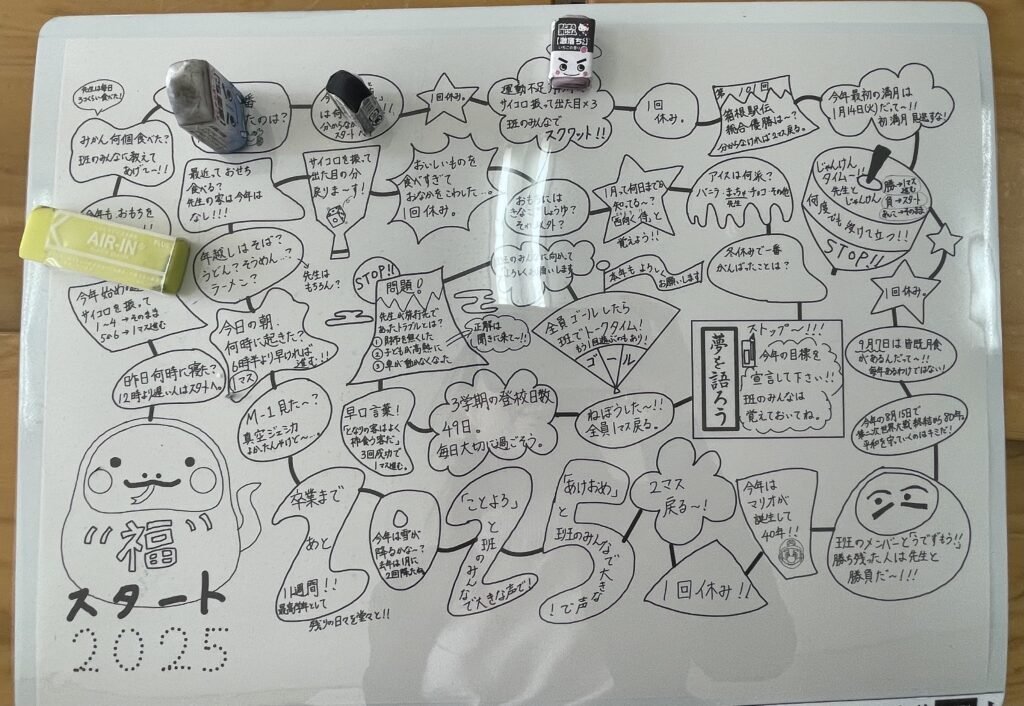 先生は毎日
3つくらい食べた!
みかん何個食べた?
班のみんなに教えて
あげて~!!
1回休み。
運動不足
サイコロ振って出た目×3
班のみんなで
スクワット!!
1回
休み。
箱根駅伝
総合優勝は~?
分からなければ2マス戻る。
今年最初の満月は
1月14日(火)だって~!!
初満月 見逃すな!
最近っておせち
食べる?
先生の家は今年は
なし!!!
サイコロを振って
出た目の分
戻りま~す!
おいしいものを
食べすぎて
おなかをこわした…。
1回休み。
おもちには
きなこ?しょうゆ?
それ以外?
1月って何日まであるか
知ってる~?
西向く侍と
覚えよう!!
アイスは何派?
バニラ・まっちゃ・チョコ・その他
先生
じゃんけん
タイム~!!
先生と
じゃんけん
勝→1マス
進む
負→スタート
あいこ→そのまま
何度でも受けて立つ!!
STOP!!
今年もおもちを
AIR-IN
PLUS
年越しはそば?
うどん?そうめん…?
ラーメン?
先生は
もちろん?
今年始め
サイコロを振って
1~4→そのまま
5か6→1マス進む
STOP!!
問題!
先生が旅行先で
あったトラブルとは?
①財布を無くした
②子どもが高熱に
③車が動かなくなった
正解は
聞きに来て~!!
班のみんなに向かって
よろしくお願いします
本年もよろしく
お願いします
冬休みで一番
がんばったことは?
1回休み。
今日の朝
何時に起きた?
6時半より早ければ
1マス
進む!!
全員ゴールしたら
班でトークタイム!
もう1回遊ぶのもあり!
ゴール
ストップ~!!!
夢を語ろう
今年の目標を
宣言して下さい!!
班のみんなは
覚えておいてね。
9月7日は皆既月食
があるんだって~!!
毎年あるわけではない!
昨日何時に寝た?
12時より遅い人はスタートへ。
M-1見た~?
真空ジェシカ
よかったんやけど~…。
早口言葉!
「となりの客はよく
柿食う客だ」
3回成功で
1マス進む。
3学期の登校日数
49日。
毎日大切に過ごそう。
ねぼうした~!!
全員1マス戻る。
今年の8月15日で
第二次世界大戦終結から80年。
平和を守っていくのはキミだ!
“福”
スタート
2025
卒業まで
あと
11週間!!
最高学年として
残りの日々を堂々と!!
今年は雪が
降るかな~?
去年は1月に
2回降ったね。
「ことよろ」
と班のみんな
で大きな声で!
「あけおめ」
と班のみんなで大きな
声で!
2マス
戻る~!
1回休み!!
今年は
マリオが
誕生して
40年!!
班のメンバーとうでずもう!!
勝ち残った人は先生と
勝負だ~!!!